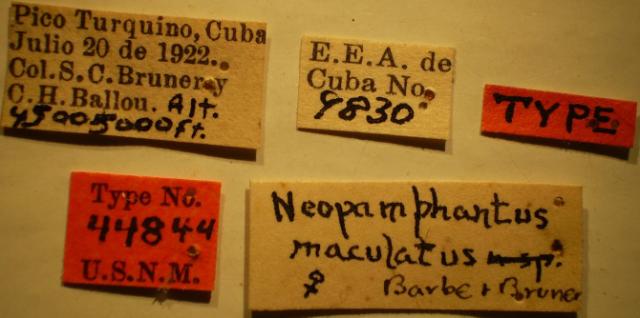 Pico Turquino, Cuba
Julio 20 de 1922.
Col.S.C.Bruner y
C.H.Ballou. Alt.
4500 5000 ft.
E.E.A. de
Cuba No.
9830
TYPE
Type No.
44844
U.S.N.M.
Neopamphantus
maculatus n.sp.
♀ Barber + Bruner